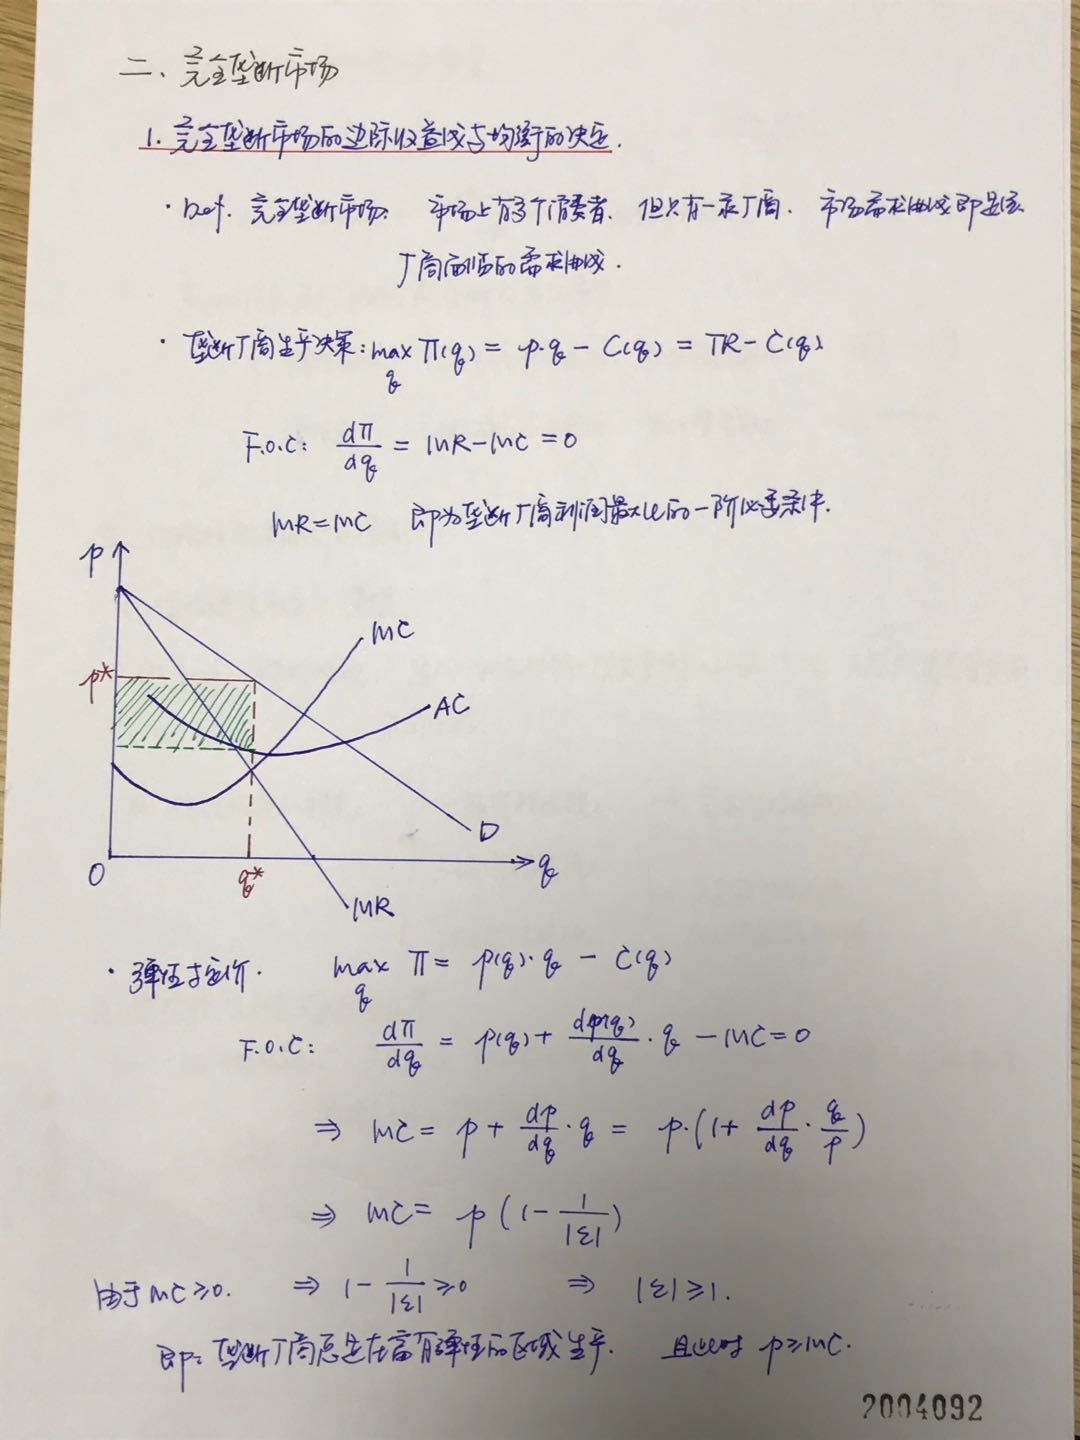 二、完全垄断市场
1. 完全垄断市场的边际收益线与均衡的决定.
· Def. 完全垄断市场: 市场上有多个消费者, 但只有一家厂商. 市场需求曲线即是该
厂商面临的需求曲线.
· 垄断厂商生产决策: max π(q) = p·q - C(q) = TR - C(q)
q
F.O.C: dπ/dq = MR - MC = 0
MR = MC 即为垄断厂商利润最大化的一阶必要条件.
p
MC
p*
AC
D
O
q*
q
MR
· 弹性与定价. max π = p(q)·q - C(q)
q
F.O.C: dπ/dq = p(q) + dp(q)/dq · q - MC = 0
⇒ MC = p + dp/dq · q = p·(1 + dp/dq · q/p)
⇒ MC = p(1 - 1/|ε|)
由于 MC ≥ 0. ⇒ 1 - 1/|ε| ≥ 0 ⇒ |ε| ≥ 1.
即: 垄断厂商总是在富有弹性的区域生产. 且此时 p ≥ MC.
2004092